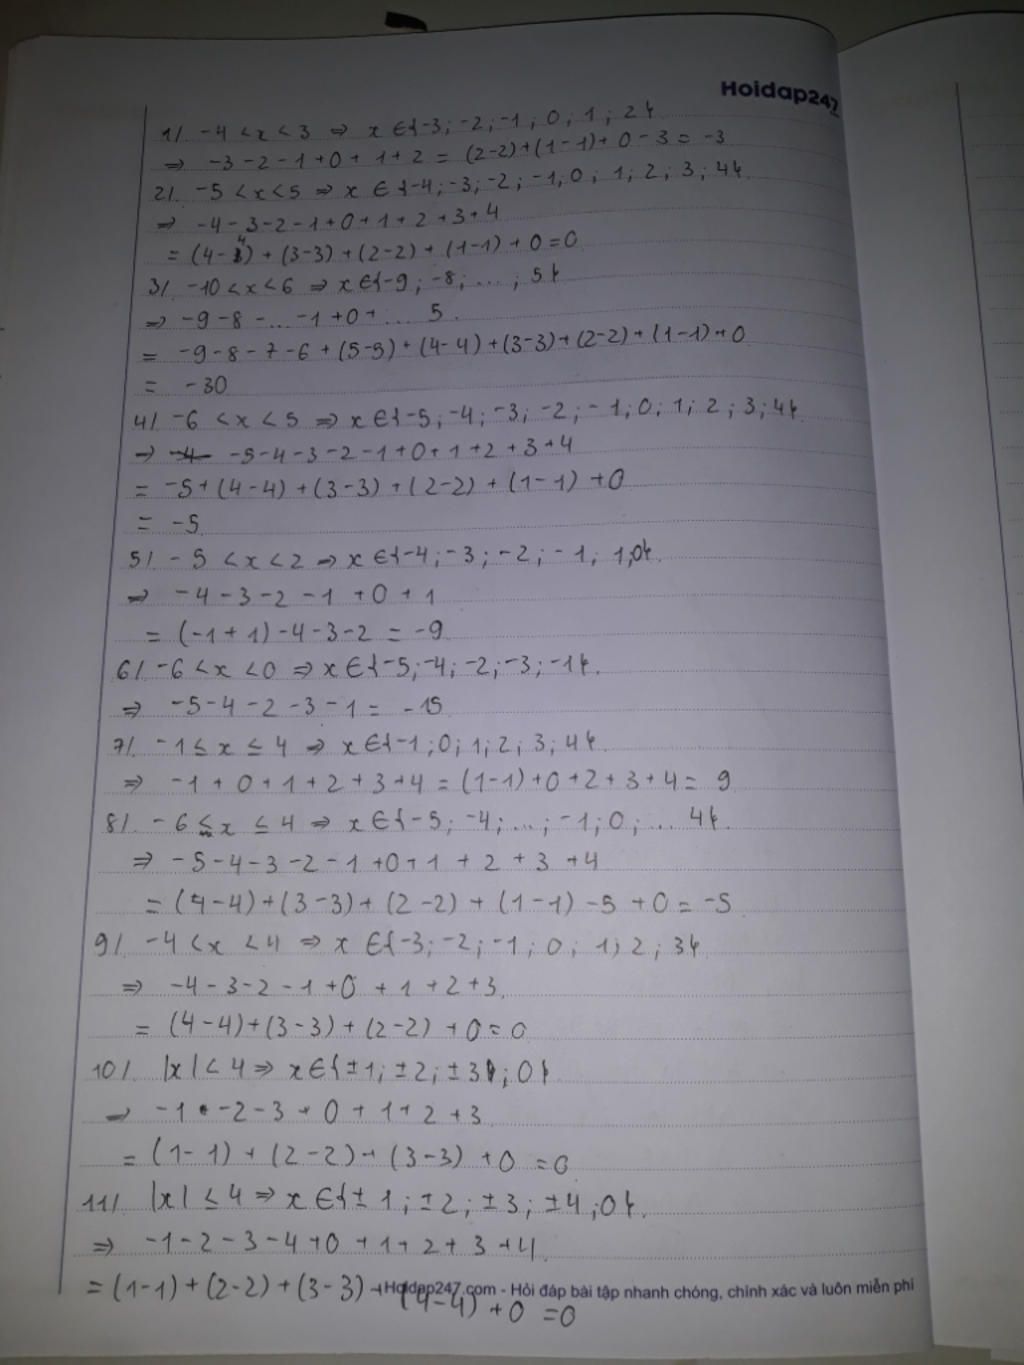 Hoidap247
1/. -4 < x < 3 ⇒ x ∈ {-3; -2; -1; 0; 1; 2}
⇒ -3 - 2 - 1 + 0 + 1 + 2 = (2-2) + (1-1) + 0 - 3 = -3
2/. -5 < x < 5 ⇒ x ∈ {-4; -3; -2; -1; 0; 1; 2; 3; 4}
⇒ -4 - 3 - 2 - 1 + 0 + 1 + 2 + 3 + 4
= (4-4) + (3-3) + (2-2) + (1-1) + 0 = 0
3/. -10 < x < 6 ⇒ x ∈ {-9; -8; ...; 5}
⇒ -9 - 8 - ... -1 + 0 + ... 5.
= -9 - 8 - 7 - 6 + (5-5) + (4-4) + (3-3) + (2-2) + (1-1) + 0
= -30
4/. -6 < x < 5 ⇒ x ∈ {-5; -4; -3; -2; -1; 0; 1; 2; 3; 4}
⇒ -5 - 4 - 3 - 2 - 1 + 0 + 1 + 2 + 3 + 4
= -5 + (4-4) + (3-3) + (2-2) + (1-1) + 0
= -5
5/. -5 < x < 2 ⇒ x ∈ {-4; -3; -2; -1; 1; 0}.
⇒ -4 - 3 - 2 - 1 + 0 + 1
= (-1 + 1) - 4 - 3 - 2 = -9
6/. -6 < x < 0 ⇒ x ∈ {-5; -4; -2; -3; -1}.
⇒ -5 - 4 - 2 - 3 - 1 = -15
7/. -1 ≤ x ≤ 4 ⇒ x ∈ {-1; 0; 1; 2; 3; 4}.
⇒ -1 + 0 + 1 + 2 + 3 + 4 = (1-1) + 0 + 2 + 3 + 4 = 9
8/. -6 ≤ x ≤ 4 ⇒ x ∈ {-5; -4; ...; -1; 0; ... 4}.
⇒ -5 - 4 - 3 - 2 - 1 + 0 + 1 + 2 + 3 + 4
= (4-4) + (3-3) + (2-2) + (1-1) - 5 + 0 = -5
9/. -4 < x < 4 ⇒ x ∈ {-3; -2; -1; 0; 1; 2; 3}
⇒ -4 - 3 - 2 - 1 + 0 + 1 + 2 + 3.
= (4-4) + (3-3) + (2-2) + 0 = 0
10/. |x| < 4 ⇒ x ∈ {±1; ±2; ±3; 0}.
⇒ -1 - 2 - 3 + 0 + 1 + 2 + 3
= (1-1) + (2-2) + (3-3) + 0 = 0
11/. |x| ≤ 4 ⇒ x ∈ {±1; ±2; ±3; ±4; 0}.
⇒ -1 - 2 - 3 - 4 + 0 + 1 + 2 + 3 + 4.
= (1-1) + (2-2) + (3-3) + (4-4) + 0 = 0
Hoidap247.com - Hỏi đáp bài tập nhanh chóng, chính xác và luôn miễn phí